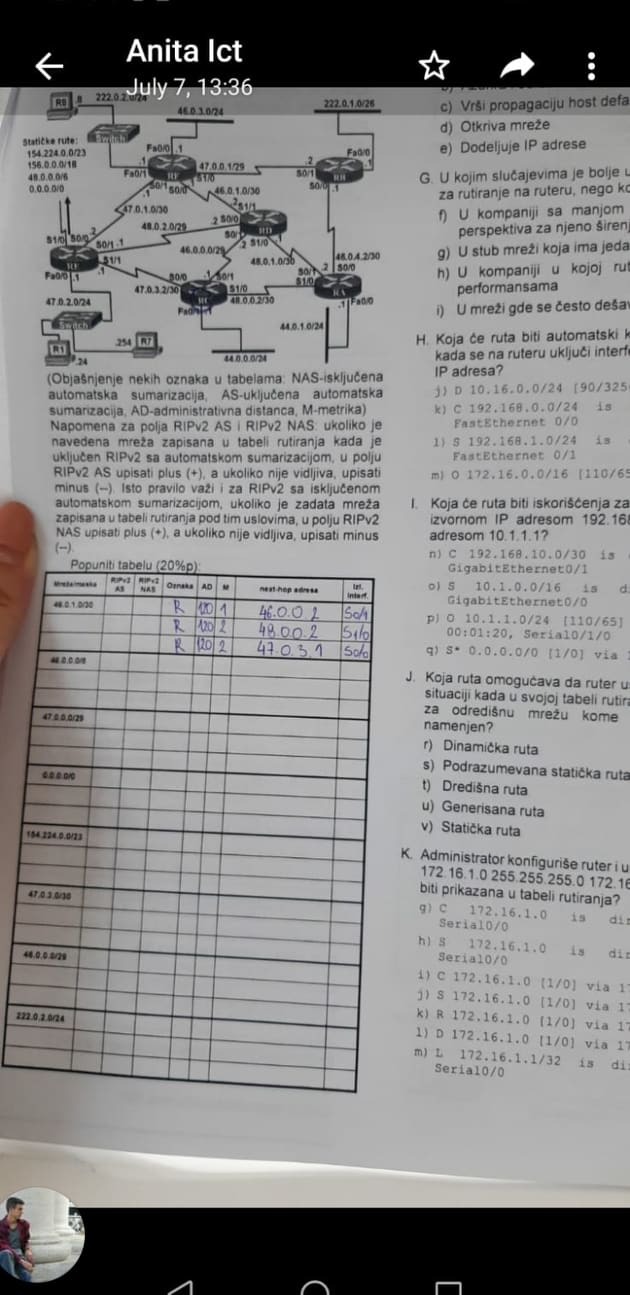 Anita Ict
July 7, 13:36
R8
.8
222.0.2.0/24
46.0.3.0/24
222.0.1.0/26
Switch
Statičke rute:
154.224.0.0/23
156.0.0.0/18
48.0.0.0/6
0.0.0.0/0
Fa0/0
.1
Fa0/1
47.0.0.1/29
.2
S0/1
Fa0/0
.1
RH
S1/0
S0/1
S0/0
46.0.1.0/30
S0/0
.1
47.0.1.0/30
48.0.2.0/29
.2
S0/0
S1/1
RD
S1/0
S0/0
.2
S0/1
.1
46.0.0.0/29
48.0.1.0/30
46.0.4.2/30
S1/1
Fa0/0
.1
47.0.3.2/30
S0/0
.1
S0/1
S1/0
48.0.0.2/30
S0/1
.2
S0/0
S1/0
RA
.1
Fa0/0
47.0.2.0/24
Switch
44.0.1.0/24
R1
.24
.254
R7
44.0.0.0/24
(Objašnjenje nekih oznaka u tabelama: NAS-isključena
automatska sumarizacija, AS-uključena automatska
sumarizacija, AD-administrativna distanca, M-metrika)
Napomena za polja RIPv2 AS i RIPv2 NAS: ukoliko je
navedena mreža zapisana u tabeli rutiranja kada je
uključen RIPv2 sa automatskom sumarizacijom, u polju
RIPv2 AS upisati plus (+), a ukoliko nije vidljiva, upisati
minus (–). Isto pravilo važi i za RIPv2 sa isključenom
automatskom sumarizacijom, ukoliko je zadata mreža
zapisana u tabeli rutiranja pod tim uslovima, u polju RIPv2
NAS upisati plus (+), a ukoliko nije vidljiva, upisati minus
(–).
Popuniti tabelu (20%p):
Mreža/maska RIPv2 AS RIPv2 NAS Oznaka AD M next-hop adresa Izl. interf.
46.0.1.0/30 R 120 1 46.0.0.2 S0/1
R 120 2 48.0.0.2 S1/0
R 120 2 47.0.3.1 S0/0
46.0.0.0/8
47.0.0.0/29
0.0.0.0/0
154.224.0.0/23
47.0.3.0/30
46.0.0.0/29
222.0.2.0/24
c) Vrši propagaciju host defa
d) Otkriva mreže
e) Dodeljuje IP adrese
G. U kojim slučajevima je bolje u
za rutiranje na ruteru, nego ko
f) U kompaniji sa manjom
perspektiva za njeno širenj
g) U stub mreži koja ima jeda
h) U kompaniji u kojoj rut
performansama
i) U mreži gde se često dešav
H. Koja će ruta biti automatski k
kada se na ruteru uključi interfe
IP adresa?
j) D 10.16.0.0/24 [90/325
k) C 192.168.0.0/24 is
FastEthernet 0/0
l) S 192.168.1.0/24 is
FastEthernet 0/1
m) O 172.16.0.0/16 [110/65
I. Koja će ruta biti iskorišćenja za
izvornom IP adresom 192.168
adresom 10.1.1.1?
n) C 192.168.10.0/30 is
GigabitEthernet0/1
o) S 10.1.0.0/16 is d
GigabitEthernet0/0
p) O 10.1.1.0/24 [110/65]
00:01:20, Serial0/1/0
q) S* 0.0.0.0/0 [1/0] via
J. Koja ruta omogućava da ruter u
situaciji kada u svojoj tabeli rutira
za odredišnu mrežu kome
namenjen?
r) Dinamička ruta
s) Podrazumevana statička ruta
t) Dredišna ruta
u) Generisana ruta
v) Statička ruta
K. Administrator konfiguriše ruter i u
172.16.1.0 255.255.255.0 172.16
biti prikazana u tabeli rutiranja?
g) C 172.16.1.0 is dir
Serial0/0
h) S 172.16.1.0 is dir
Serial0/0
i) C 172.16.1.0 [1/0] via 17
j) S 172.16.1.0 [1/0] via 17
k) R 172.16.1.0 [1/0] via 17
l) D 172.16.1.0 [1/0] via 17
m) L 172.16.1.1/32 is di
Serial0/0